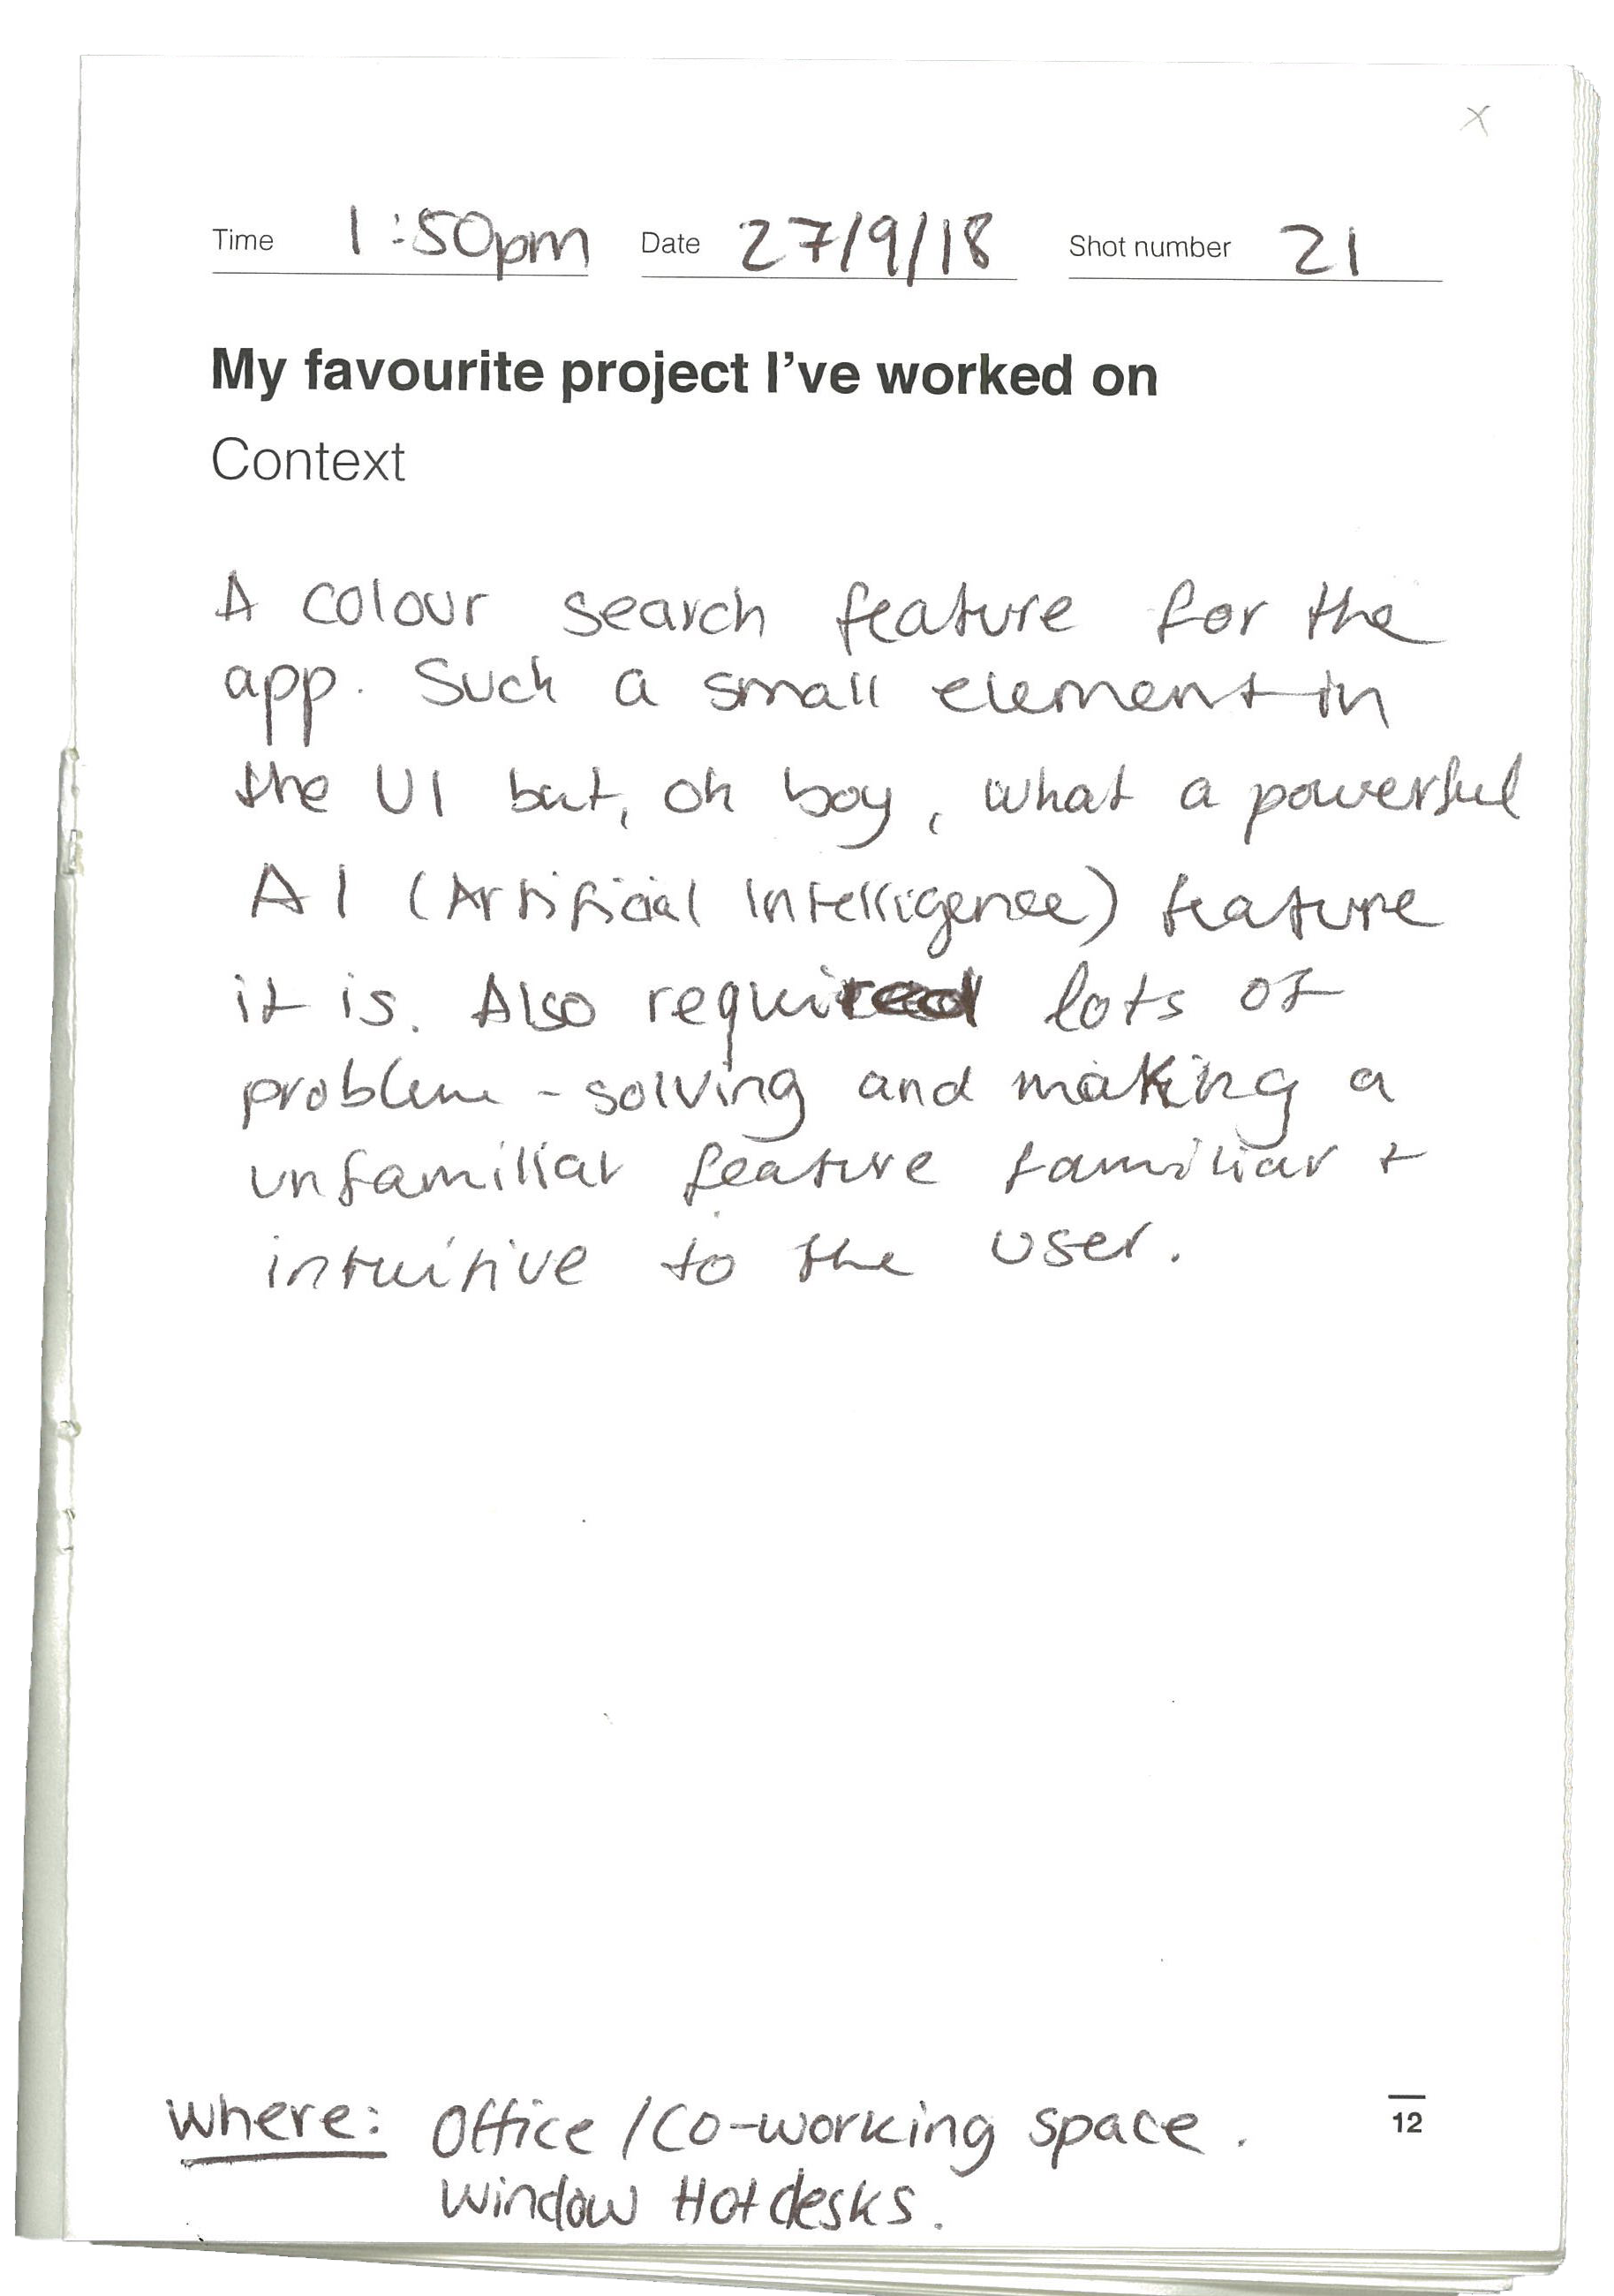 x
Time 1:50pm Date 27/9/18 Shot number 21
My favourite project I've worked on
Context
A colour search feature for the
app. Such a small element in
the UI but, oh boy, what a powerful
AI (Artificial Intelligence) feature
it is. Also required lots of
problem-solving and making a
unfamiliar feature familiar +
intuitive to the user.
12
Where: Office / Co-working space.
Window Hotdesks.